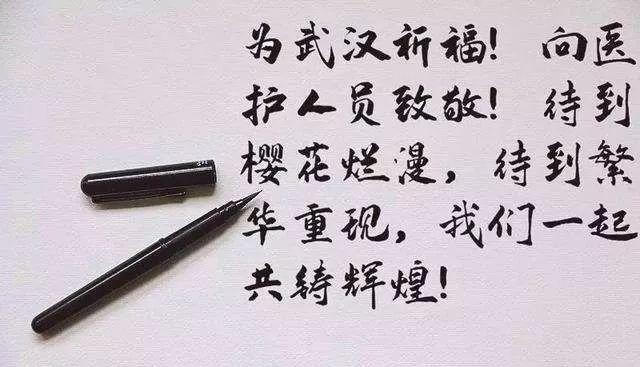 为武汉祈福！ 向医
护人员致敬！ 待到
樱花烂漫，待到繁
华重现，我们一起
共铸辉煌！